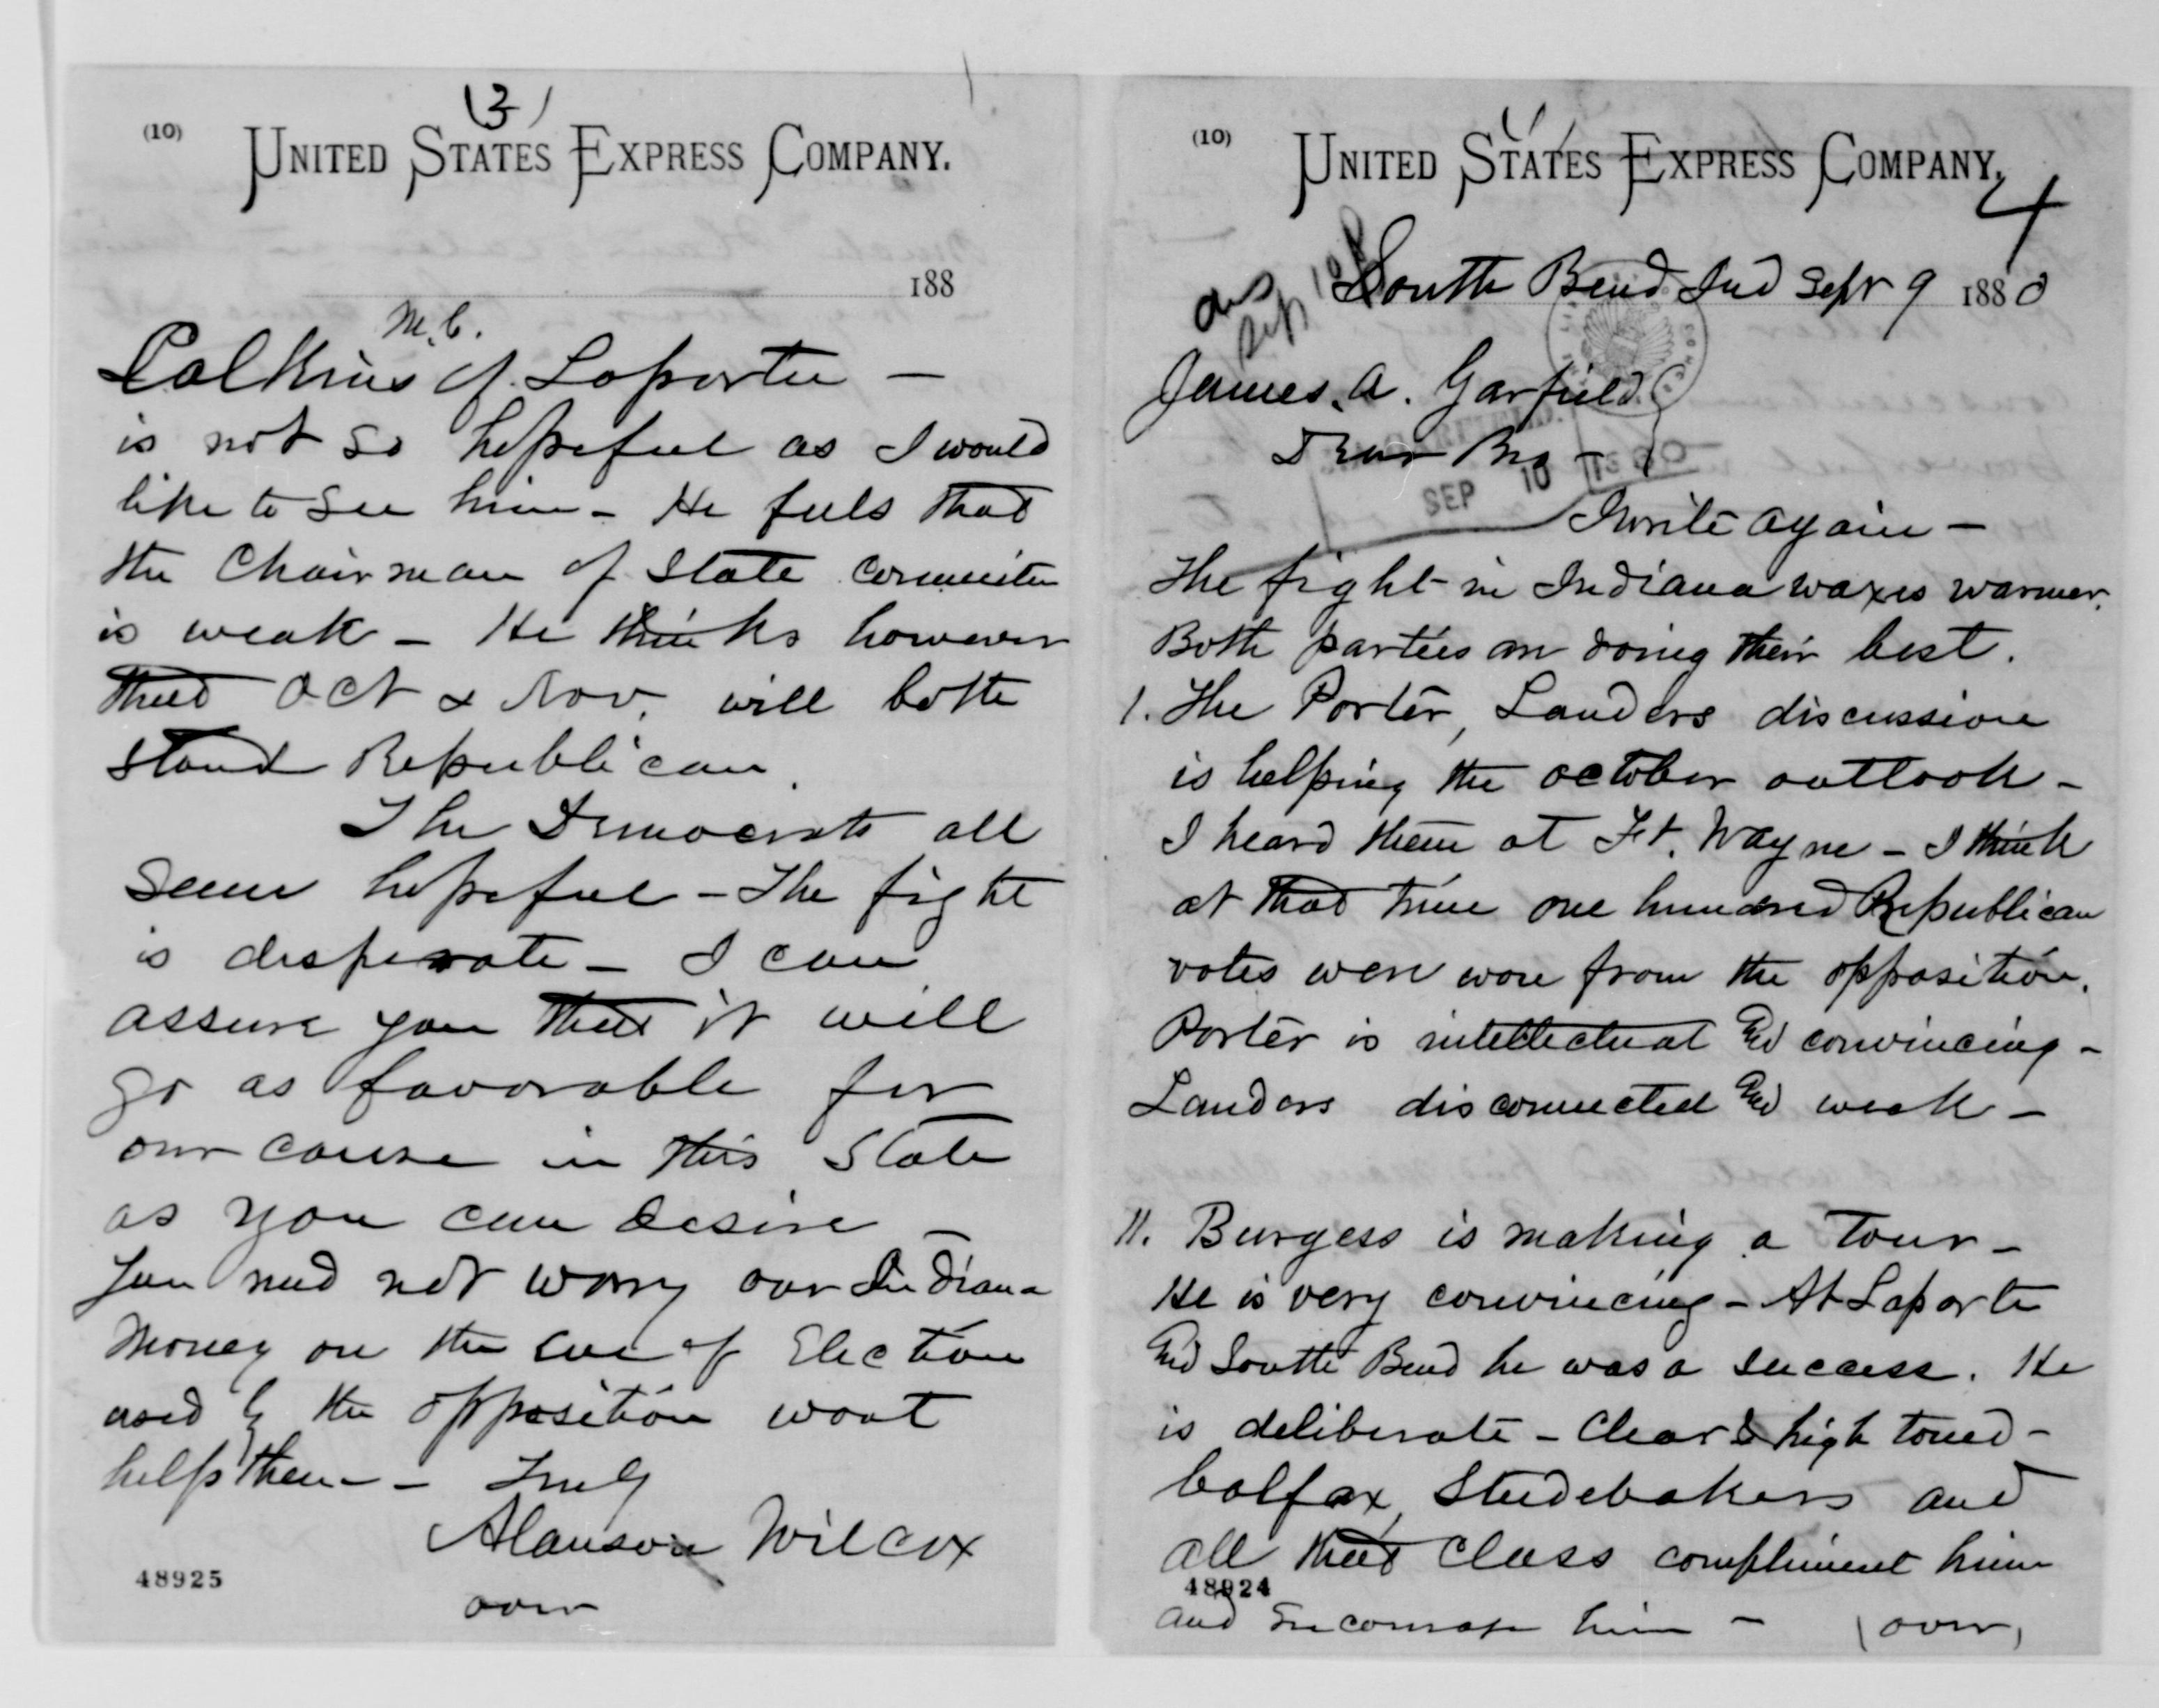 (3)
(10)
UNITED STATES EXPRESS COMPANY.
188
M.C.
Calkins of Laporte —
is not so hopeful as I would
like to see him – He feels that
the Chairman of State Committee
is weak – He thinks however
that Oct & Nov. will both
stand Republican.
The Democrats all
seem hopeful – The fight
is desperate – I can
assure you that it will
go as favorable for
our cause in this State
as you can desire –
You need not worry over Indiana
Money on the eve of Election
used by the opposition wont
help them – Truly
Alanson Wilcox
over
48925
(1)
(10)
UNITED STATES EXPRESS COMPANY.
4
ans
Sep 10
South Bend Ind Sept 9 1880
James. A. Garfield
Dear Bro –
SEP 10 1880
I write again –
The fight in Indiana waxes warmer.
Both parties are doing their best.
1. The Porter, Landers discussion
is helping the October outlook –
I heard them at Ft. Wayne – I think
at that time one hundred Republican
votes were won from the opposition.
Porter is intellectual and convincing –
Landers disconnected and weak –
11. Burgess is making a tour –
He is very convincing – At Laporte
and South Bend he was a success. He
is deliberate – Clear & high toned –
Colfax, Studebakers and
all that class compliment him
48924
and encourage him – (over)